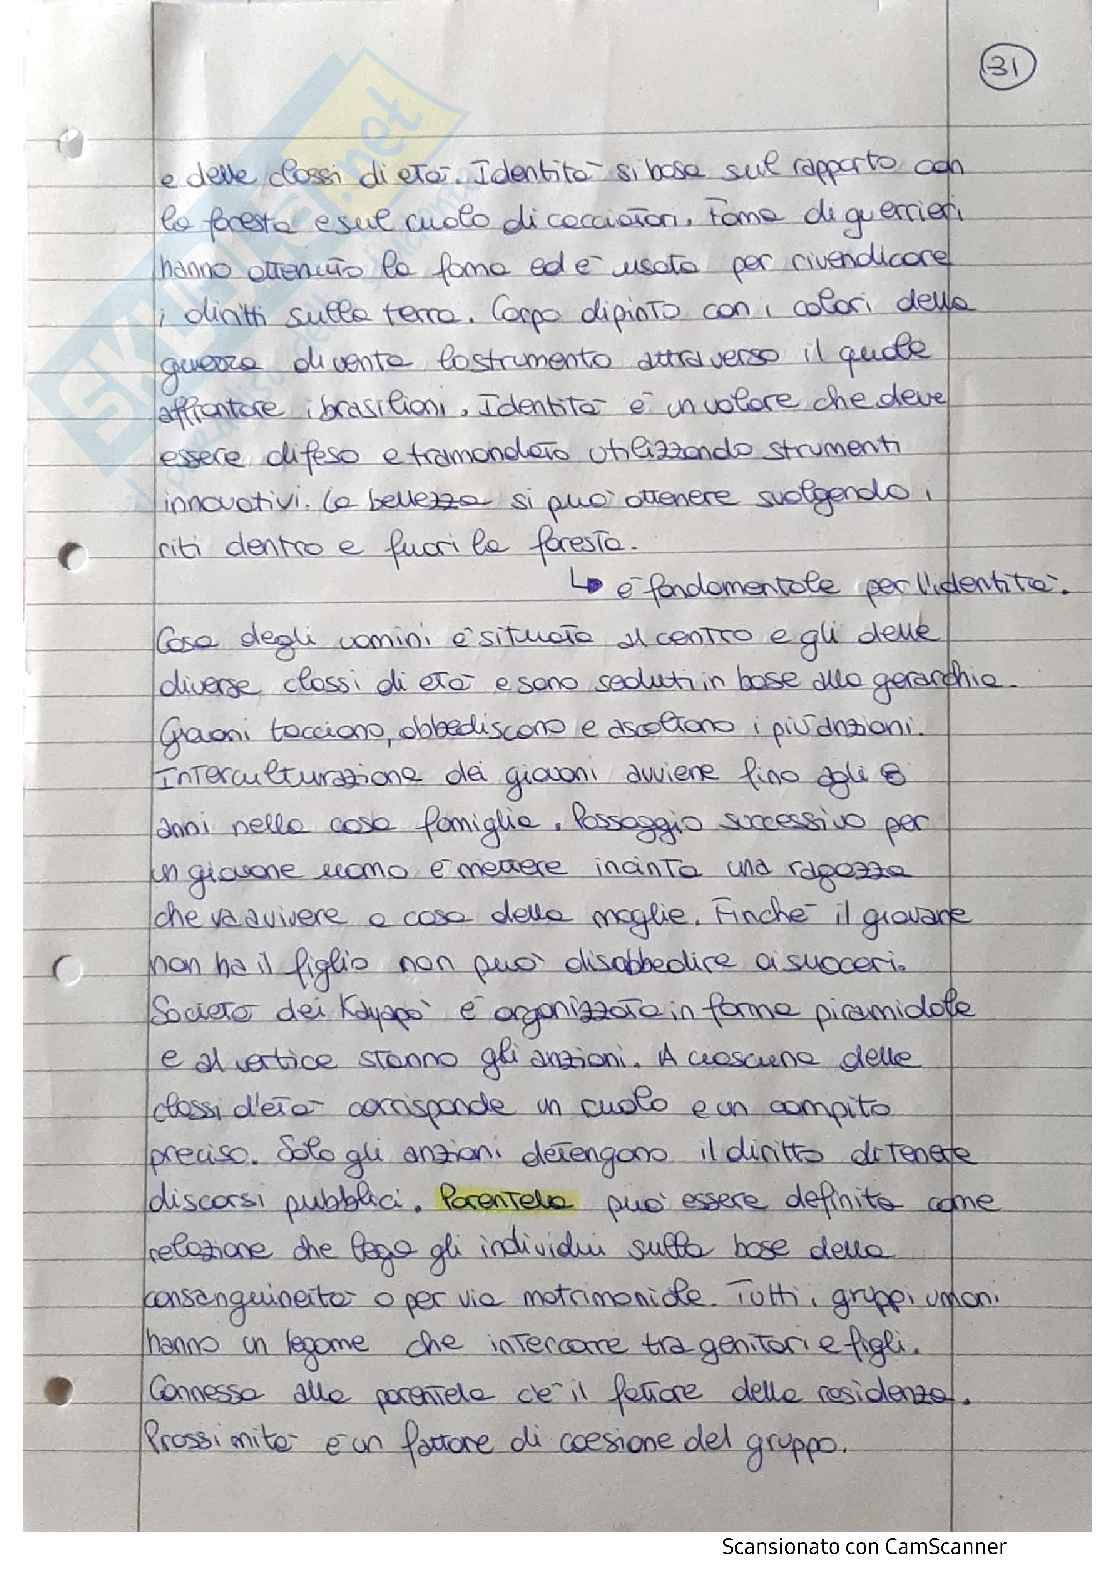 31
e delle classi di età. Identità si basa sul rapporto con
la foresta e sul ruolo di cacciatori. Fama di guerrieri
hanno ottenuto la fama ed è usata per rivendicare
i diritti sulla terra. Corpo dipinto con i colori della
guerra diventa lo strumento attraverso il quale
affrontare i brasiliani. Identità è un valore che deve
essere difeso e tramandato utilizzando strumenti
innovativi. La bellezza si può ottenere svolgendo i
riti dentro e fuori la foresta.
↳ è fondamentale per l'identità.
Casa degli uomini è situata al centro e gli delle
diverse classi di età e sono seduti in base alla gerarchia.
Giovani tacciono, obbediscono e ascoltano i più anziani.
Interculturazione dei giovani avviene fino agli 8
anni nella casa famiglia. Passaggio successivo per
un giovane uomo è mettere incinta una ragazza
che va a vivere a casa della moglie. Finché il giovane
non ha il figlio non può disobbedire ai suoceri.
Società dei Kayapò è organizzata in forma piramidale
e al vertice stanno gli anziani. A ciascuna delle
classi d'età corrisponde un ruolo e un compito
preciso. Solo gli anziani detengono il diritto di tenere
discorsi pubblici. Parentela può essere definita come
relazione che lega gli individui sulla base della
consanguineità o per via matrimoniale. Tutti i gruppi umani
hanno un legame che intercorre tra genitori e figli.
Connessa alla parentela c'è il fattore della residenza.
Prossimità è un fattore di coesione del gruppo.
SKUOLA.net
Scansionato con CamScanner